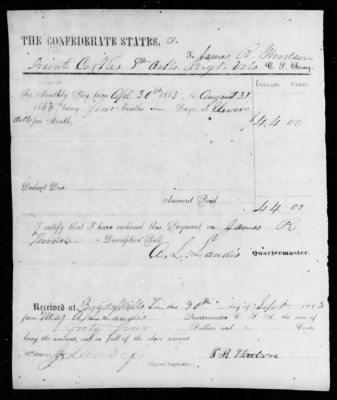 THE CONFEDERATE STATES, Dr.
To James R.
Private Co. Regt. Vols. C. S. Army.
DOLLARS. CENTS.
For Monthly Pay, from Apl 30th 1863 to August 31
1863 being four Months Days, at Eleven
dolls per Month, $44 00
Deduct Due
Amount Paid 44 00
I certify that I have endorsed this Payment on James R
Descriptive Roll
A. L. Landis
Quartermaster.
Received at this 30th day of Sept 1863
from Maj A L Landis Quartermaster C. S. A. the sum of
Forty four Dollars and Cents
being the amount, and in full of the above account.
Witness
J. R.
(Signed Duplicates.)